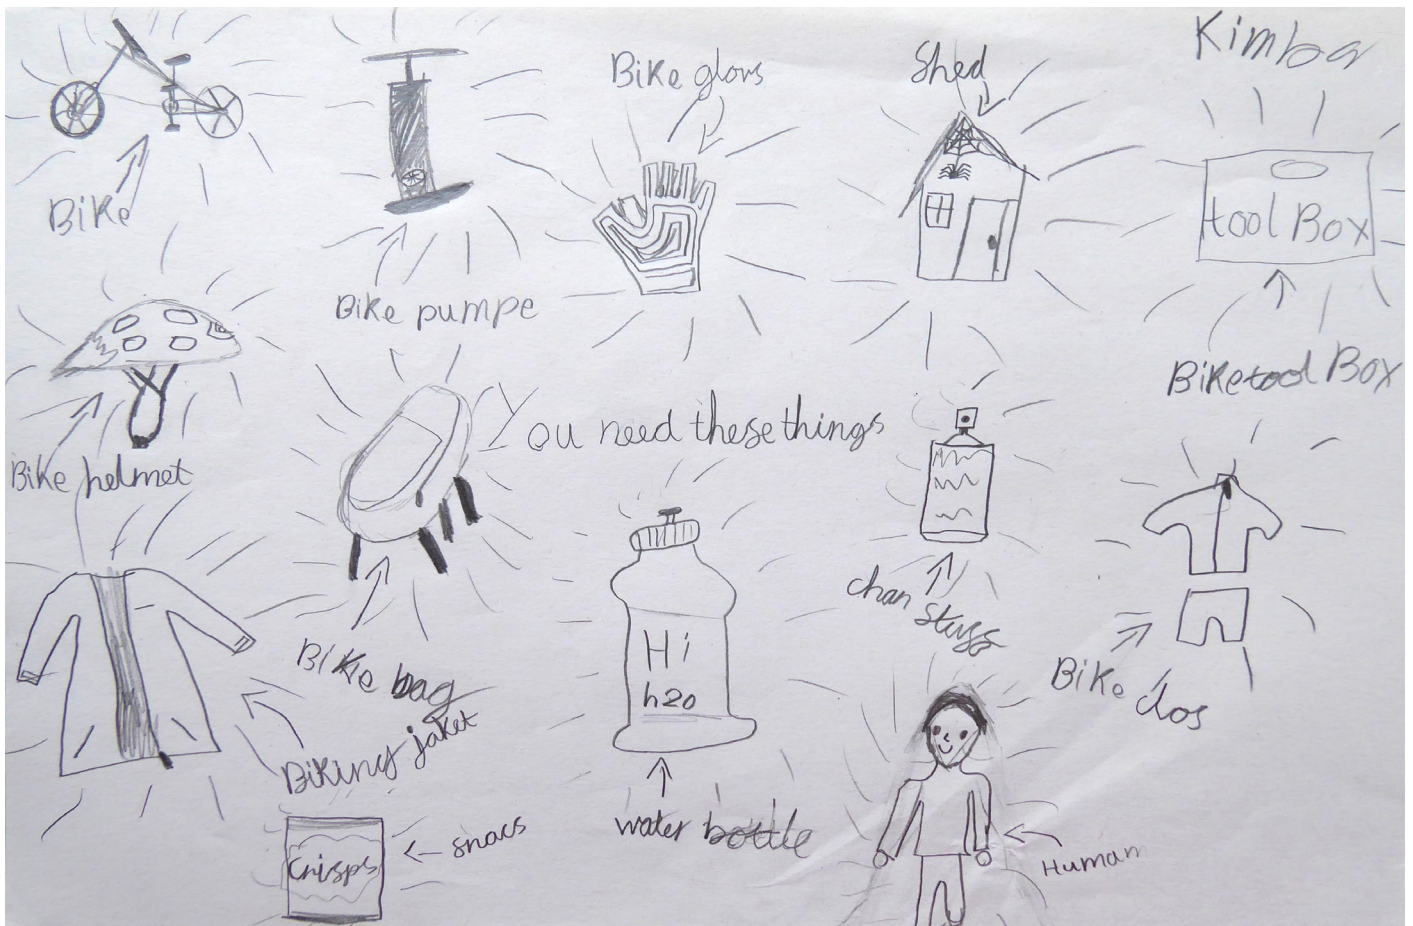 Kimba
Bike
Bike pumpe
Bike glovs
Shed
tool Box
Bike tool Box
Bike helmet
You need these things
Bike bag
Biking jaket
Hi
h2o
water bottle
chan stuff
Bike clos
Crisps
snacs
Human